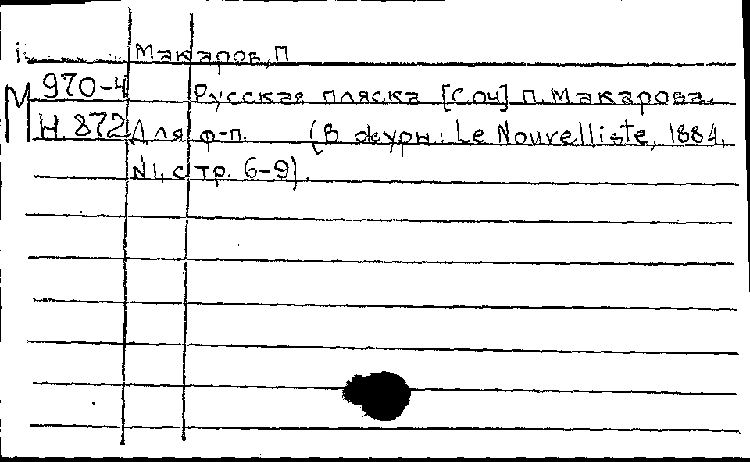 Макаров, П
М 970-4 Русская пляска [Соч] П. Макарова.
Н 872 Для ф-п. (В журн.: Le Nouvelliste, 1884,
N1, стр. 6-9).